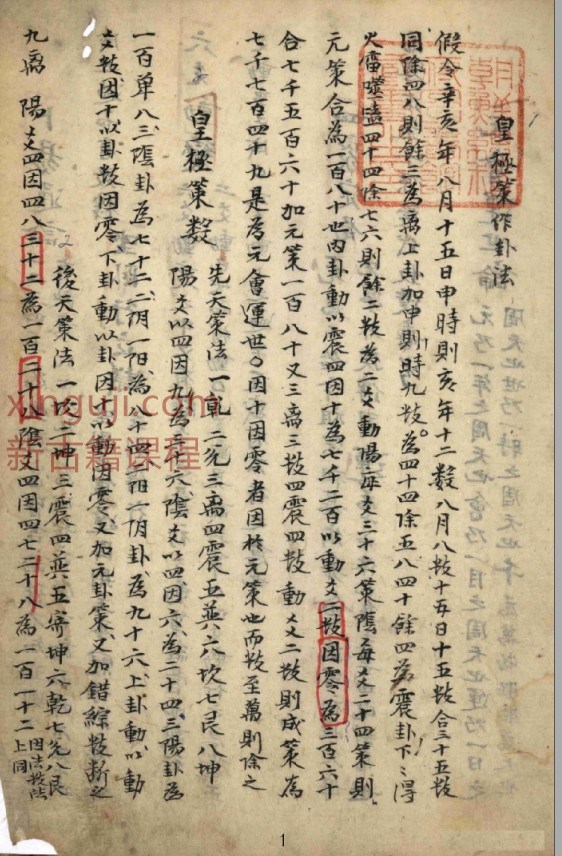 皇極策作卦法
假令辛亥年八月十五日申時則亥年十二數八月八數十五日十五數合三十五數
同除四八則餘三為离上卦加申則時九數為四十四除五八四十餘四為震卦下〻得
火雷噬嗑四十四除七六則餘二數為二爻動陽每爻三十六策陰每爻二十四策則
元策合為一百八十也內卦動以震四因十為七千二百以動爻二數因零為三百六十
合七千五百六十加元策一百八十又三离三數四震四數動爻二數則成策為
七千七百四十九是為元會運世〇因十因零者因於元策也而數至萬則除之
皇極策數
先天策法一乾二兌三离四震五巽六坎七艮八坤
陽爻以四因九為三十六陰爻以四因六為二十四三陽卦為
一百單八三陰卦為七十二二陰一陽為八十四二陽一陰卦為九十六上卦動以動
爻數因十以卦數因零下卦動以卦因十以動因零又加元卦策又加錯綜數斷之
後天策法一坎二坤三震四巽五寄坤六乾七兌八艮
九离 陽爻四因四八三十二為一百二十八陰爻四因四七二十八為一百一十二
因法數法
上同
xinguji.com
新古籍课程
1